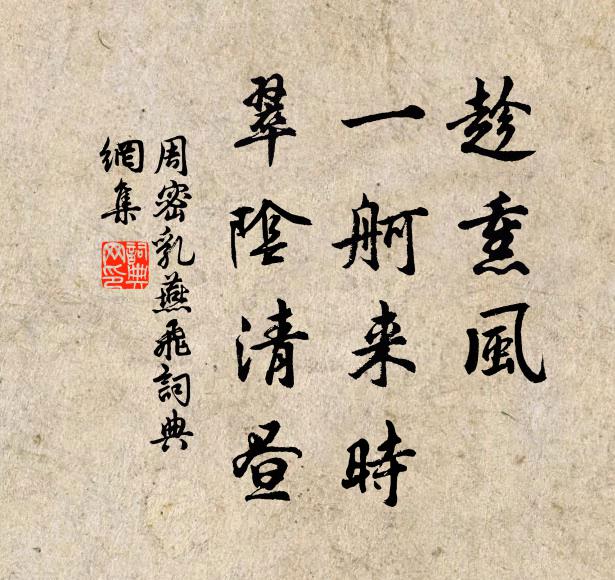 趁熏風
一舸来時
翠陰清昼
周密乳燕飛詞典
網集
詞典
网印